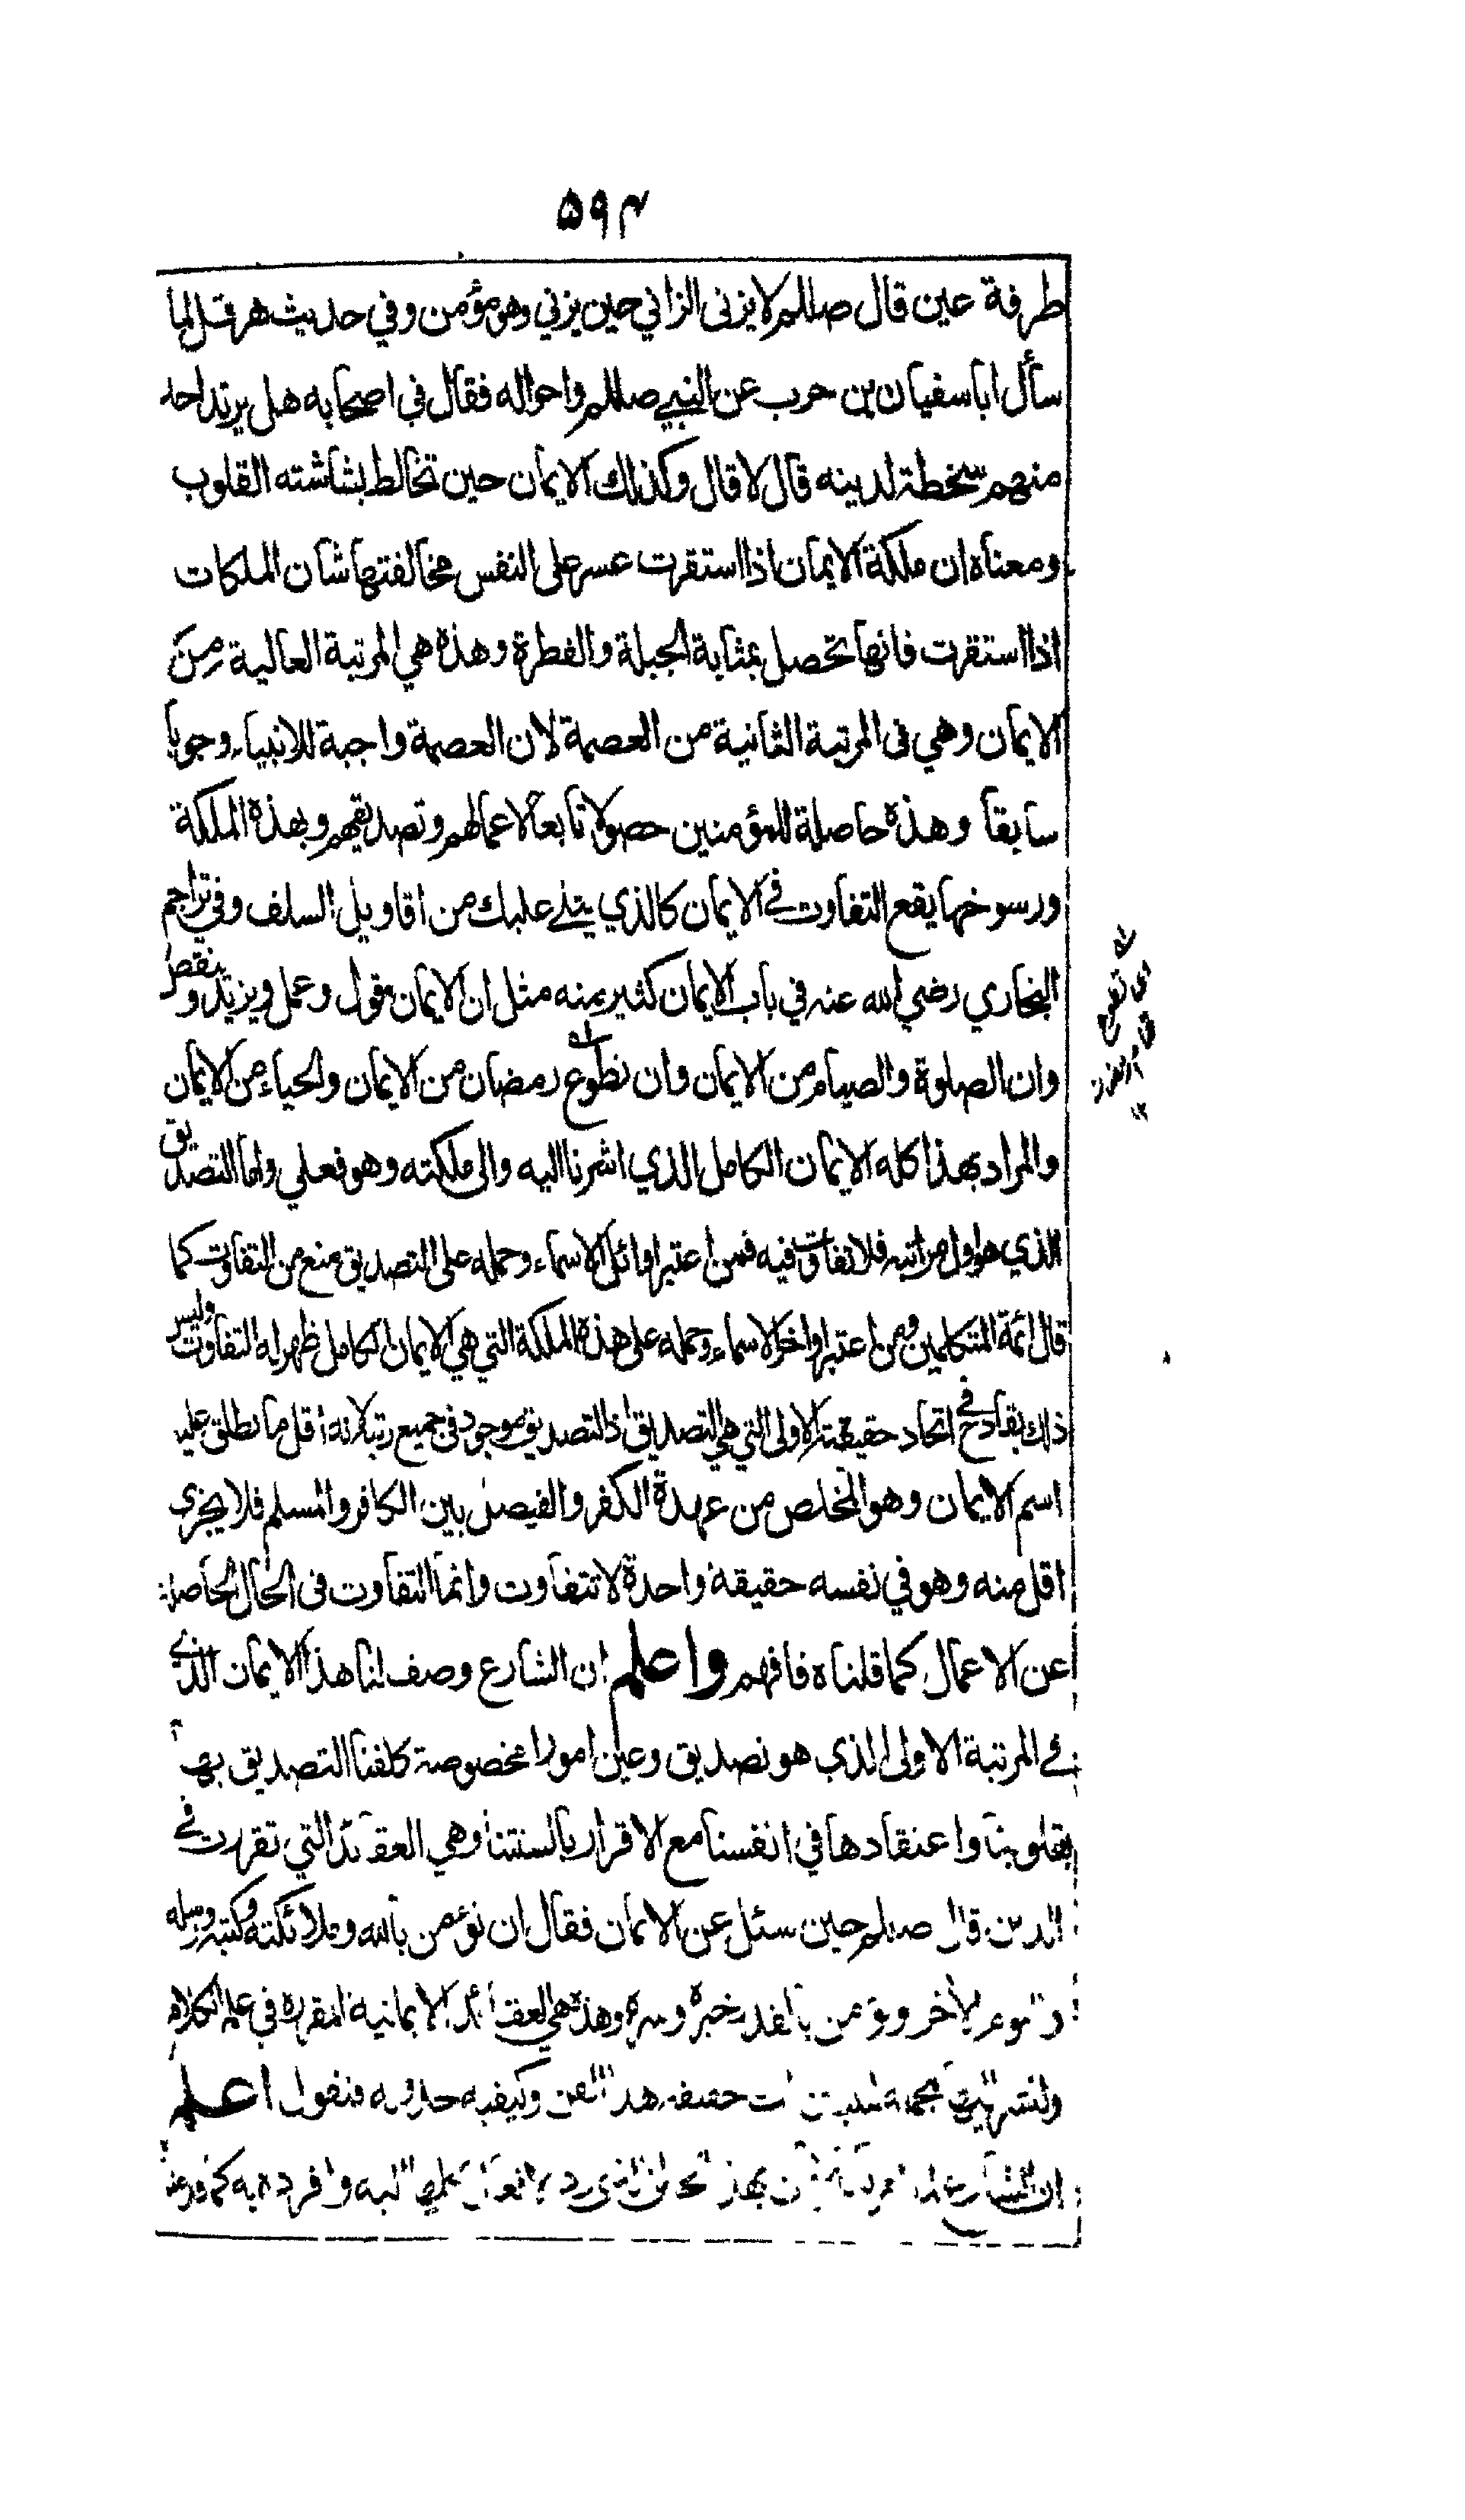 ۵۹۴
طرفة عين قال صللم لا يزنى الزاني حين يزني وهو مؤمن وفي حديث هرقل لما
سأل ابا سفيان بن حرب عن النبي صللم واحواله فقال في اصحابه هل يرتد احد
منهم سخطة لدينه قال لا قال وكذلك الايمان حين تخالط بشاشته القلوب
ومعناه ان ملكة الايمان اذا استقرت عسر على النفس مخالفتها شان الملكات
اذا استقرت فانها تحصل بمثابة الجبلة والفطرة وهذه هي المرتبة العالية من
الايمان وهي فى المرتبة الثانية من العصمة لان العصمة واجبة للانبياء وجوبا
سابقا وهذه حاصلة للمؤمنين حصولا تابعا لاعمالهم وتصديقهم وبهذه الملكة
ورسوخها يقع التفاوت في الايمان كالذي يتلى عليك من اقاويل السلف وفي تراجم
البخاري رضي الله عنه في باب الايمان كثير منه مثل ان الايمان قول وعمل ويزيد وينقص
وان الصلوة والصيام من الايمان وان تطوع رمضان من الايمان والحياء من الايمان
والمراد بهذا كله الايمان الكامل الذي اشرنا اليه والى ملكته وهو فعلي واما التصديق
الذي هو اول مراتبه فلا تفاوت فيه فمن اعتبر اوائل الاسماء وحمله على التصديق منع من التفاوت كما
قال ائمة المتكلمين ومن اعتبر اواخر الاسماء وحمله على هذه الملكة التي هي الايمان الكامل ظهر له التفاوت وليس
ذلك بقادح في اتحاد حقيقته الاولى التي هي التصديق اذ التصديق موجود في جميع رتبه لانه اقل ما يطلق عليه
اسم الايمان وهو المخلص من عهدة الكفر والفيصل بين الكافر والمسلم فلا يجزى
اقل منه وهو في نفسه حقيقة واحدة لا تتفاوت وانما التفاوت فى الحال الحاصلة
عن الاعمال كما قلناه فافهم واعلم ان الشارع وصف لنا هذا الايمان الذي
في المرتبة الاولى الذي هو تصديق وعين امورا مخصوصة كلفنا التصديق بها
بقلوبنا واعتقادها في انفسنا مع الاقرار بالسنتنا وهي العقائد التي تقررت في
الدين قال صللم حين سئل عن الايمان فقال ان تؤمن بالله وملائكته وكتبه ورسله
واليوم الاخر وتؤمن بالقدر خيره وشره وهذه هي العقائد الايمانية المقررة في علم الكلام
ولنشر اليها مجملة حقيقة هذا الفن وكيفية حدوثه فنقول اعلم
ان الشارع لما امرنا بهذا الخالق الذي رد الافعال كلها اليه وافرده به كما قدمناه